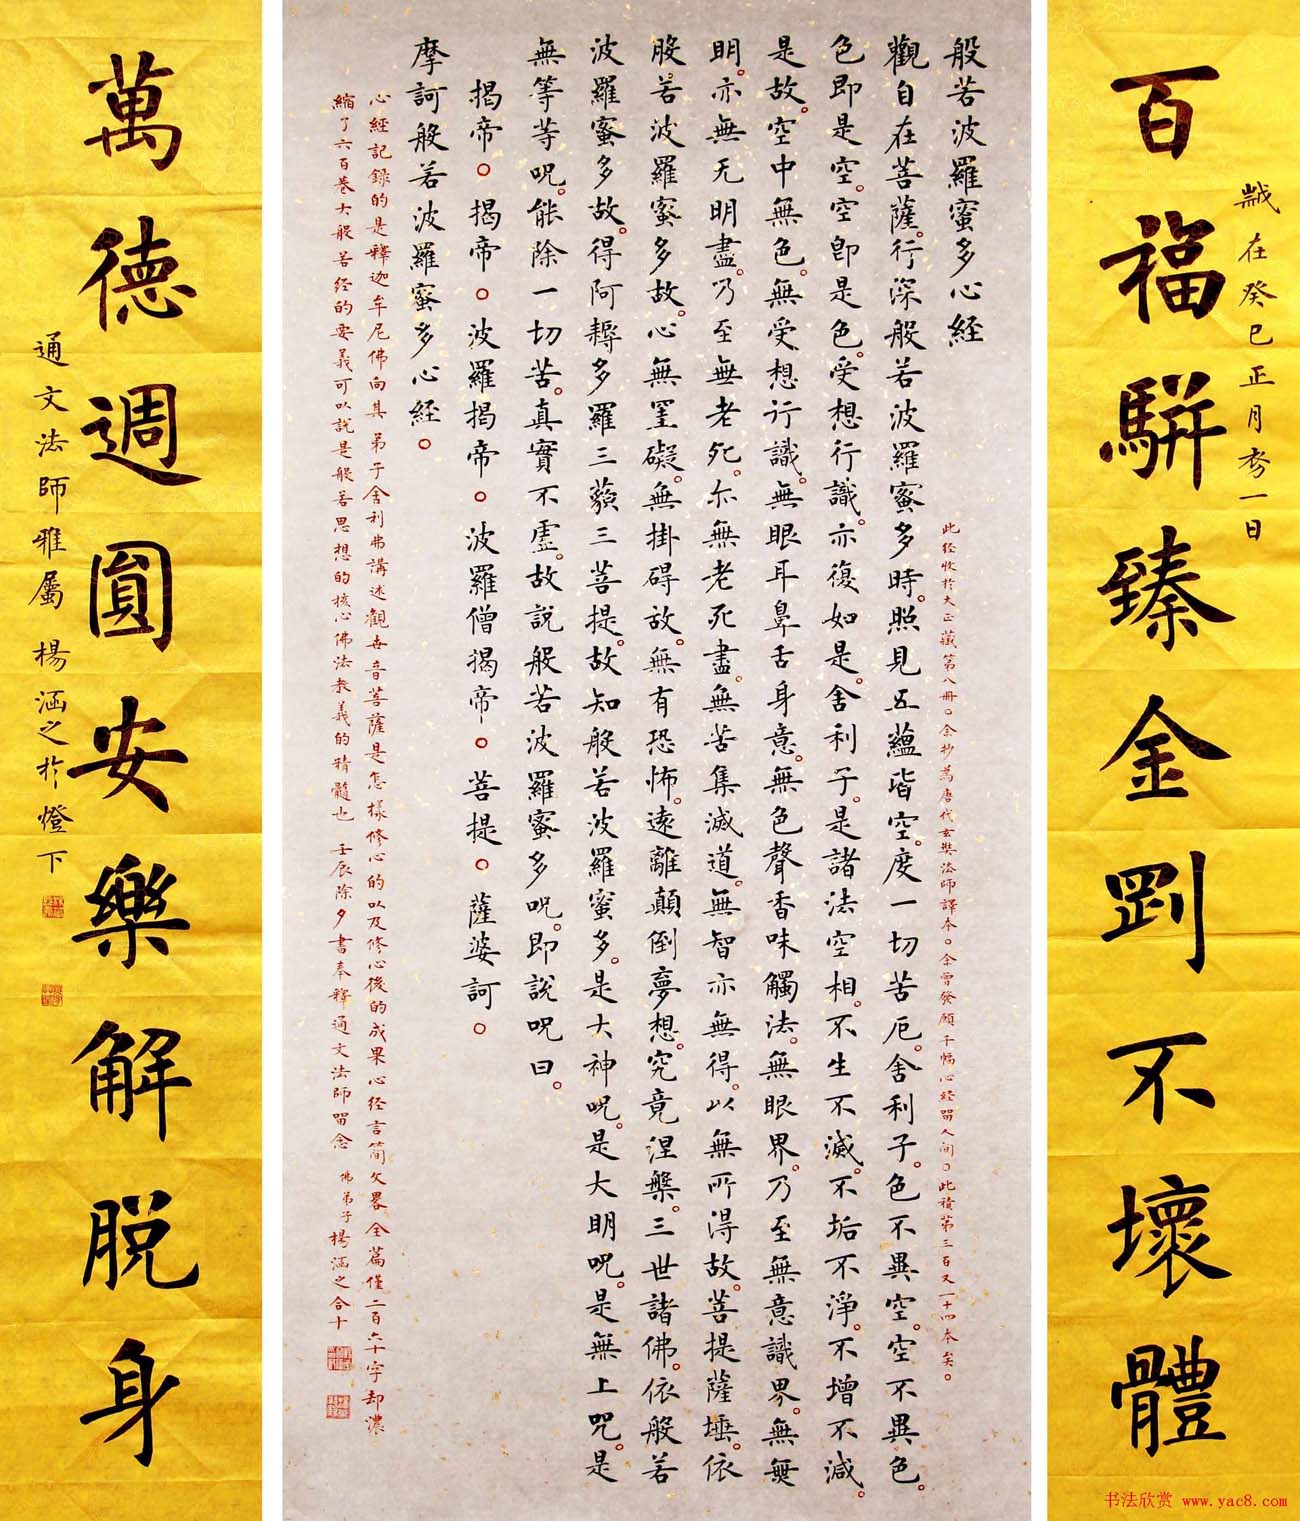 百福駢臻金剛不壞體
歲在癸巳正月初一日
般若波羅蜜多心經
此經收於大正藏第八冊。余抄為唐代玄奘法師譯本。余曾發願千幅心經留人間。此積第三百又一十四本矣。
觀自在菩薩。行深般若波羅蜜多時。照見五蘊皆空。度一切苦厄。舍利子。色不異空。空不異色。
色即是空。空即是色。受想行識。亦復如是。舍利子。是諸法空相。不生不滅。不垢不淨。不增不減。
是故。空中無色。無受想行識。無眼耳鼻舌身意。無色聲香味觸法。無眼界。乃至無意識界。無無
明。亦無无明盡。乃至無老死。亦無老死盡。無苦集滅道。無智亦無得。以無所得故。菩提薩埵。依
般若波羅蜜多故。心無罣礙。無掛碍故。無有恐怖。遠離顛倒夢想。究竟涅槃。三世諸佛。依般若
波羅蜜多故。得阿耨多羅三藐三菩提。故知般若波羅蜜多。是大神呪。是大明呪。是無上呪。是
無等等呪。能除一切苦。真實不虛。故說般若波羅蜜多呪。即說呪曰。
揭帝。揭帝。波羅揭帝。波羅僧揭帝。菩提。薩婆訶。
摩訶般若波羅蜜多心經。
心經記錄的是釋迦牟尼佛向其弟子舍利弗講述觀世音菩薩是怎樣修心的以及修心後的成果心經言簡文畧全篇僅二百六十字却濃
縮了六百卷大般若經的要義可以說是般若思想的核心佛法教義的精髓也 壬辰除夕書奉釋通文法師留念 佛弟子楊涵之合十
萬德週圓安樂解脱身
通文法師雅屬 楊涵之於燈下
书法欣赏 www.yac8.com